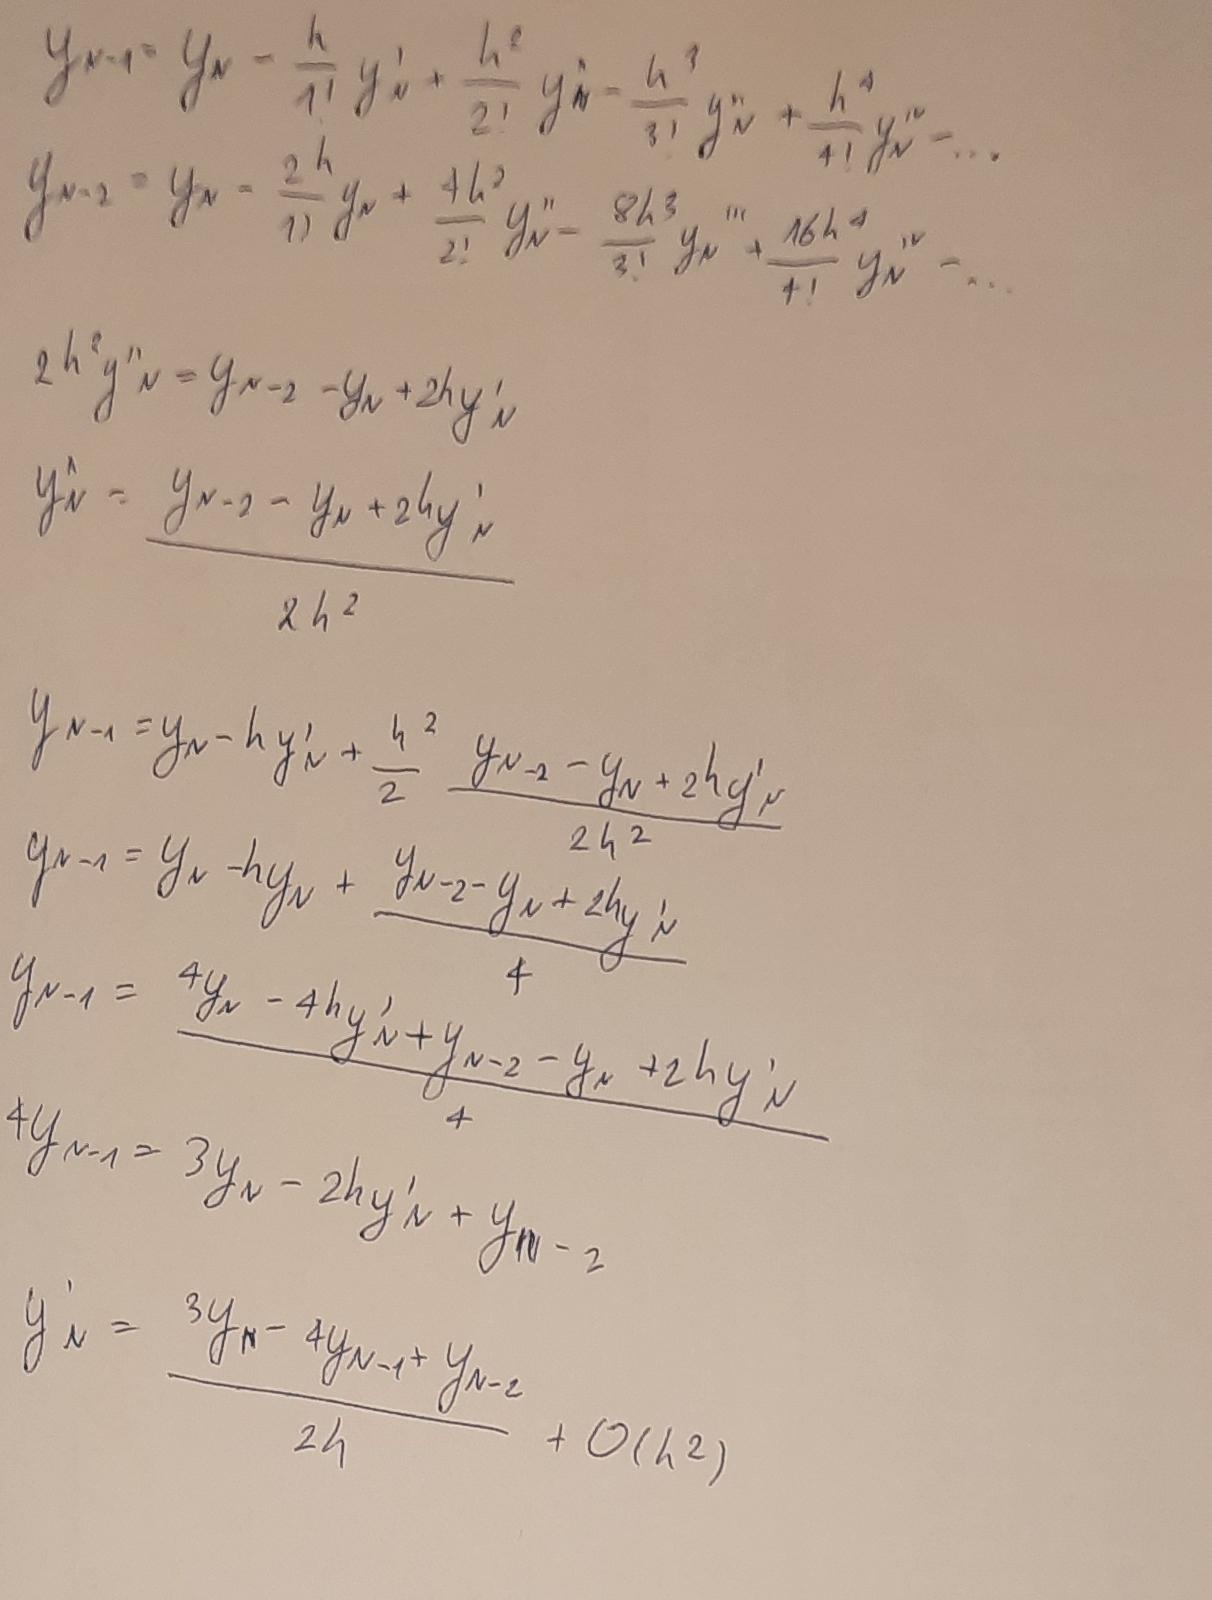 y_{N-1} = y_N - \frac{h}{1!} y'_N + \frac{h^2}{2!} y''_N - \frac{h^3}{3!} y'''_N + \frac{h^4}{4!} y^{IV}_N - ...
y_{N-2} = y_N - \frac{2h}{1!} y_N + \frac{4h^2}{2!} y''_N - \frac{8h^3}{3!} y'''_N + \frac{16h^4}{4!} y^{IV}_N - ...
2h^2 y''_N = y_{N-2} - y_N + 2hy'_N
y''_N = \frac{y_{N-2} - y_N + 2hy'_N}{2h^2}
y_{N-1} = y_N - hy'_N + \frac{h^2}{2} \frac{y_{N-2} - y_N + 2hy'_N}{2h^2}
y_{N-1} = y_N - hy_N + \frac{y_{N-2} - y_N + 2hy'_N}{4}
y_{N-1} = \frac{4y_N - 4hy'_N + y_{N-2} - y_N + 2hy'_N}{4}
4y_{N-1} = 3y_N - 2hy'_N + y_{N-2}
y'_N = \frac{3y_N - 4y_{N-1} + y_{N-2}}{2h} + O(h^2)